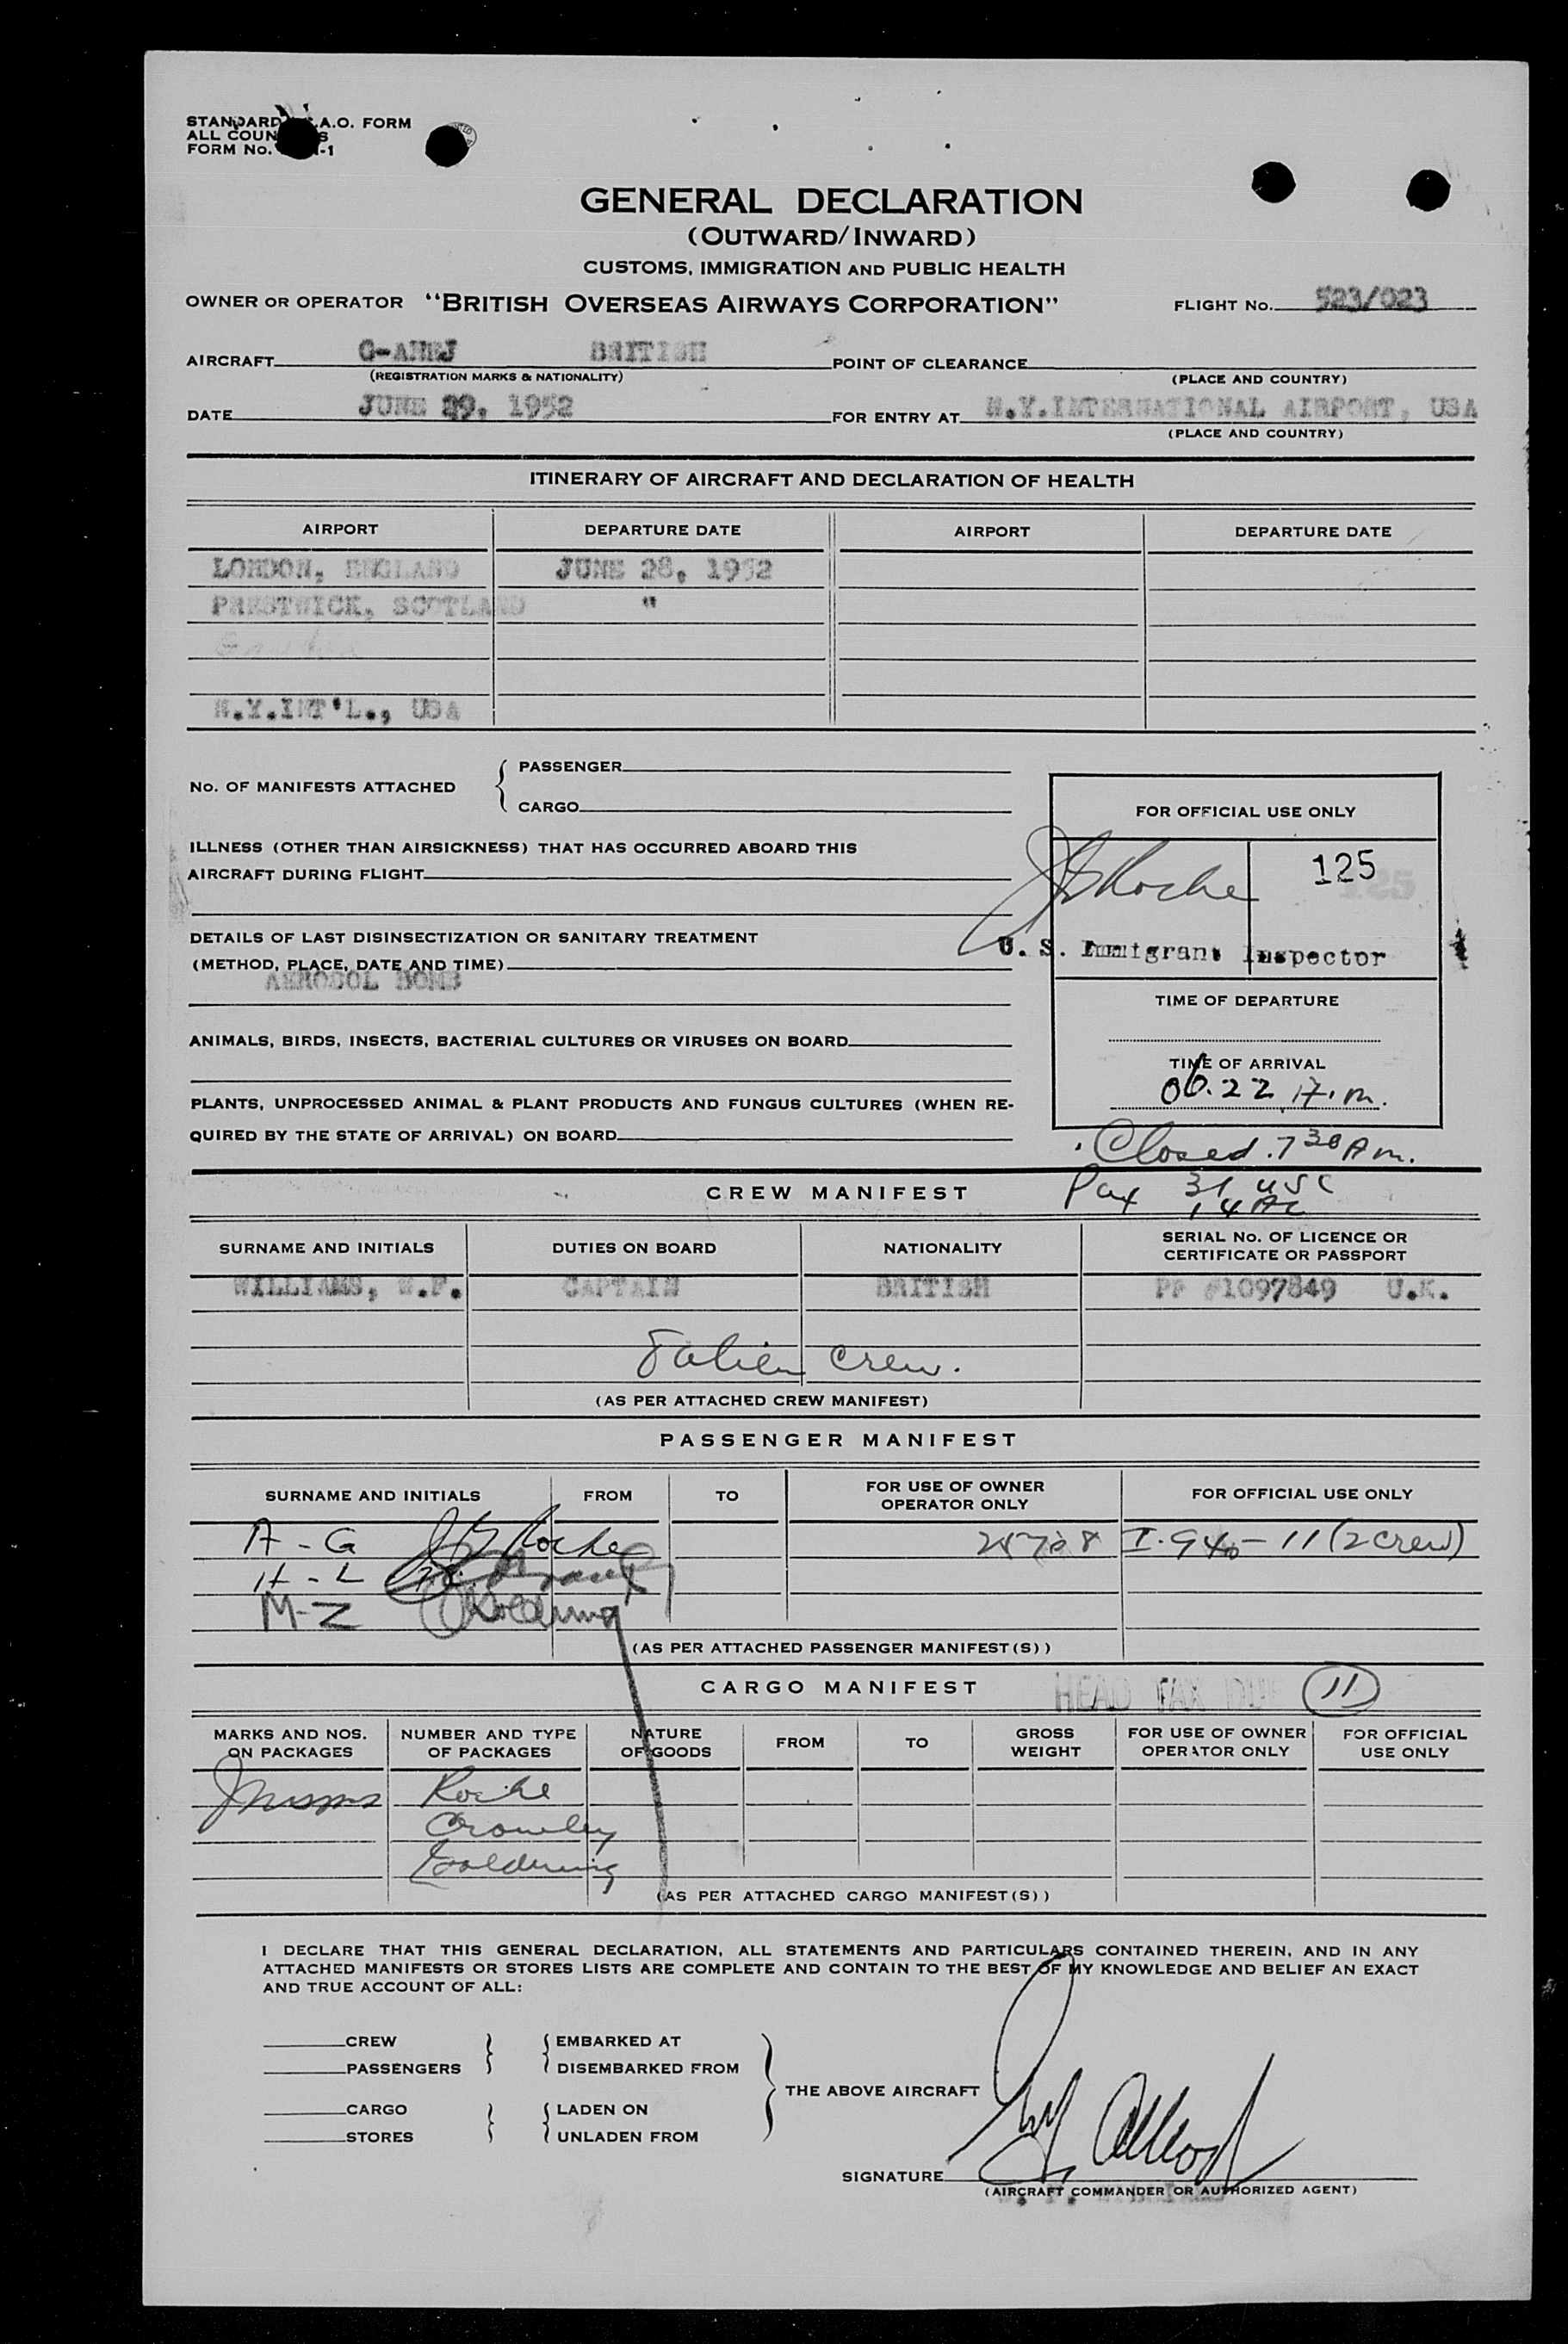 STANDARD .A.O. FORM
ALL COUN S
FORM No. -1
GENERAL DECLARATION
(OUTWARD/INWARD)
CUSTOMS, IMMIGRATION AND PUBLIC HEALTH
OWNER OR OPERATOR "BRITISH OVERSEAS AIRWAYS CORPORATION" FLIGHT No. 523/023
AIRCRAFT G-AHEJ BRITISH POINT OF CLEARANCE
(REGISTRATION MARKS & NATIONALITY) (PLACE AND COUNTRY)
DATE JUNE 29, 1952 FOR ENTRY AT N.Y.INTERNATIONAL AIRPORT, USA
(PLACE AND COUNTRY)
ITINERARY OF AIRCRAFT AND DECLARATION OF HEALTH
AIRPORT DEPARTURE DATE AIRPORT DEPARTURE DATE
LONDON, ENGLAND JUNE 28, 1952
PRESTWICK, SCOTLAND "
N.Y.INT'L., USA
No. OF MANIFESTS ATTACHED { PASSENGER
CARGO
FOR OFFICIAL USE ONLY
ILLNESS (OTHER THAN AIRSICKNESS) THAT HAS OCCURRED ABOARD THIS
AIRCRAFT DURING FLIGHT
JB Roche 125
DETAILS OF LAST DISINSECTIZATION OR SANITARY TREATMENT
(METHOD, PLACE, DATE AND TIME)
AEROSOL BOMB
U. S. Immigrant Inspector
TIME OF DEPARTURE
ANIMALS, BIRDS, INSECTS, BACTERIAL CULTURES OR VIRUSES ON BOARD
TIME OF ARRIVAL
06.22 A.m.
PLANTS, UNPROCESSED ANIMAL & PLANT PRODUCTS AND FUNGUS CULTURES (WHEN RE-
QUIRED BY THE STATE OF ARRIVAL) ON BOARD
Closed. 7 30 A m.
CREW MANIFEST
Pax 31 USC
14 AC
SURNAME AND INITIALS DUTIES ON BOARD NATIONALITY SERIAL No. OF LICENCE OR
CERTIFICATE OR PASSPORT
WILLIAMS, W.F. CAPTAIN BRITISH PP #1097849 U.K.
8 alien crew.
(AS PER ATTACHED CREW MANIFEST)
PASSENGER MANIFEST
SURNAME AND INITIALS FROM TO FOR USE OF OWNER
OPERATOR ONLY FOR OFFICIAL USE ONLY
A - G JB Roche I. 940 - 11 (2 crew)
H - L
M-Z
(AS PER ATTACHED PASSENGER MANIFEST(S))
CARGO MANIFEST HEAD TAX DUE 11
MARKS AND NOS.
ON PACKAGES NUMBER AND TYPE
OF PACKAGES NATURE
OF GOODS FROM TO GROSS
WEIGHT FOR USE OF OWNER
OPERATOR ONLY FOR OFFICIAL
USE ONLY
Roche
Crowley
(AS PER ATTACHED CARGO MANIFEST(S))
I DECLARE THAT THIS GENERAL DECLARATION, ALL STATEMENTS AND PARTICULARS CONTAINED THEREIN, AND IN ANY
ATTACHED MANIFESTS OR STORES LISTS ARE COMPLETE AND CONTAIN TO THE BEST OF MY KNOWLEDGE AND BELIEF AN EXACT
AND TRUE ACCOUNT OF ALL:
CREW } { EMBARKED AT
PASSENGERS } { DISEMBARKED FROM
THE ABOVE AIRCRAFT
CARGO } { LADEN ON
STORES } { UNLADEN FROM
SIGNATURE
(AIRCRAFT COMMANDER OR AUTHORIZED AGENT)